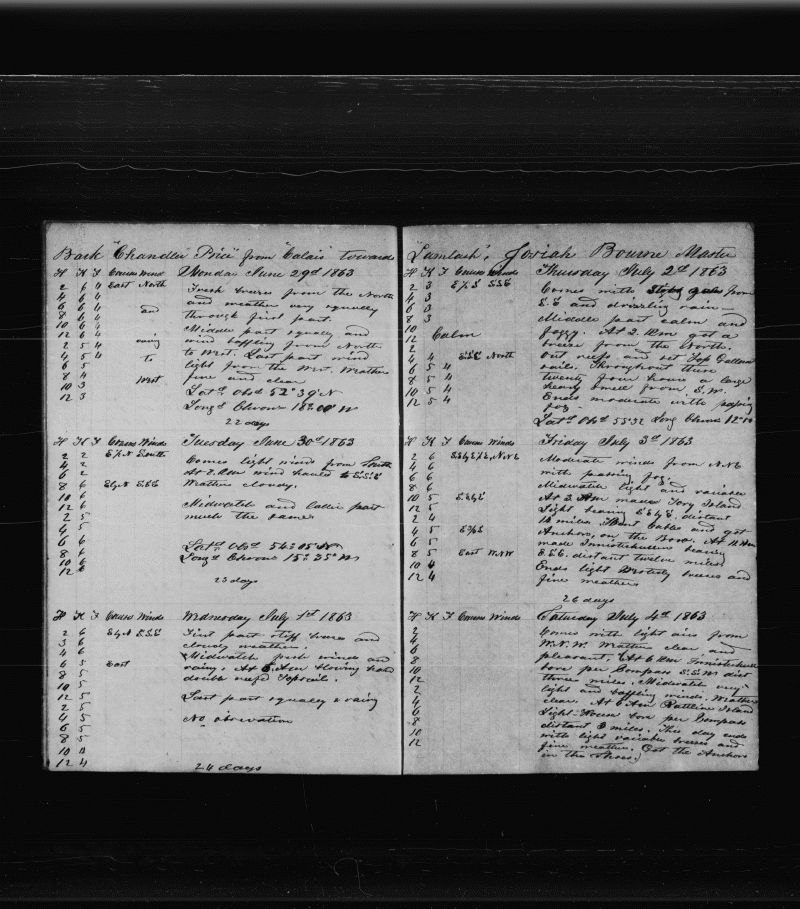 Bark "Chandler Price" from "Calais" towards
H K F Courses Wind Monday June 29d 1863
2 6 4 East North Fresh breezes from the North
4 6 4 and weather very squally
6 6 4 and through first part.
8 6 4
10 6 4 Middle part squally and
12 6 4
2 5 4 raing wind baffling from North
4 5 4 to to West. Last part wind
6 5 light from the West. Weather
8 4 West fine and clear
10 3 Latd Obsd 52° 39' N
12 3 Longd Chron 18° 00 W
22 days
H K F Courses Winds Tuesday June 30d 1863
2 2 E½N South Comes light winds from South
4 2
6 2 At 8 Am wind hauled to S.S.E
8 6 EbyN S.S.E Weather cloudy.
10 6 Midwatch and latter part
12 5
2 5 much the same
4 5
6 6 Latd Obsd 54° 05 N
8 6 Longd Chron 15° 35 W
10 6
12 6
23 days
H K F Courses Winds Wednesday July 1st 1863
2 6 EbyN S.S.E First part stiff breezes and
3 6 cloudy weather.
4 6 Midwatch fresh winds and
6 5 East rainy. At 6 Am blowing hard
8 5 double reefd Topsails.
10 5
12 5 Last part squally & rainy
2 5
4 5 No observation
6 5
8 5
10 4
12 4
24 days
"Lamlash", Josiah Bourne Master
H K F Courses Winds Thursday July 2d 1863
2 3 E½S S.S.E Comes with from
4 3 S.E and drizzly rain
6 3
8 3 Middle part calm and
10 Calm foggy. At 2. Am got a
12 breeze from the North.
2 out reefs and set Top Gallant
4 4 E.S.E North sails. Throughout these
6 5 4 twenty four hours a large
8 5 4 heavy swell from S.W.
10 5 4 Ends moderate with passing
12 5 4 fog.
Latd Obsd 55°32 Long Chron 12°10
H K F Courses Winds Friday July 3d 1863
2 6 Moderate winds from N.N.E
4 6 with passing fog.
6 6
8 6 Midwatch light and variable
10 5 E.SbyE At 3 Am made Tory Island
12 5 Light bearing E.SbyE. distant
2 4 16 miles. Bent Cables and got
4 5 E½S Anchors, on the Bow. At 11 Am
6 5 made Innistrahull bearing
8 5 East W.N.W E.S.E. distant twelve miles
10 4 Ends light Westerly breezes and
12 4 fine weather
26 days
H K F Courses Winds Saturday July 4th 1863
2 Comes with light airs from
4 W.N.W. Weather clear, and
6 pleasant. At 6 Am Innistrahull
8 bore per Compass S.S.W dist
10 three miles. Midwatch very
12 light and baffling winds. Weather
2 clear. At 6 Am Rattline Island
4 Light House bore per Compass
6 distant 3 miles. This day ends
8 with light variable breezes and
10 fine weather. Got the Anchors
12 in the Shoes.